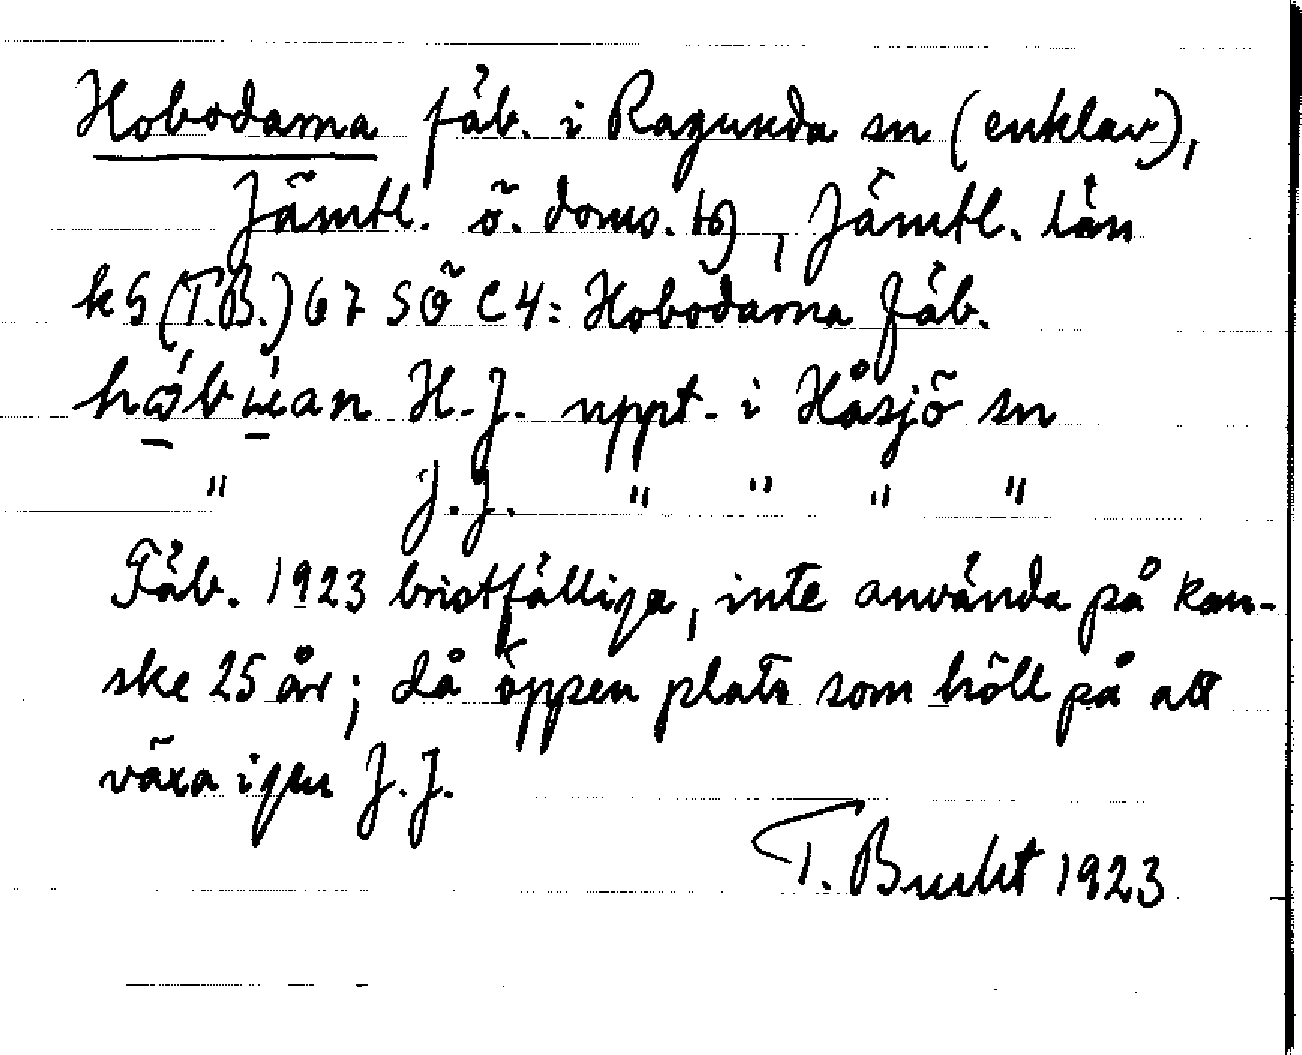 Hobodarna fäb. i Ragunda sn (enklav),
Jämtl. ö. doms. tg, Jämtl. län
kS (T.B.) 67 SÖ C4: Hobodarna Fäb.
H.J. uppt. i Håsjö sn
" J.J. " " " "
Fäb. 1923 bristfälliga, inte använda på kan-
ske 25 år; då öppen plats som höll på att
växa igen J.J.
T. Bucht 1923